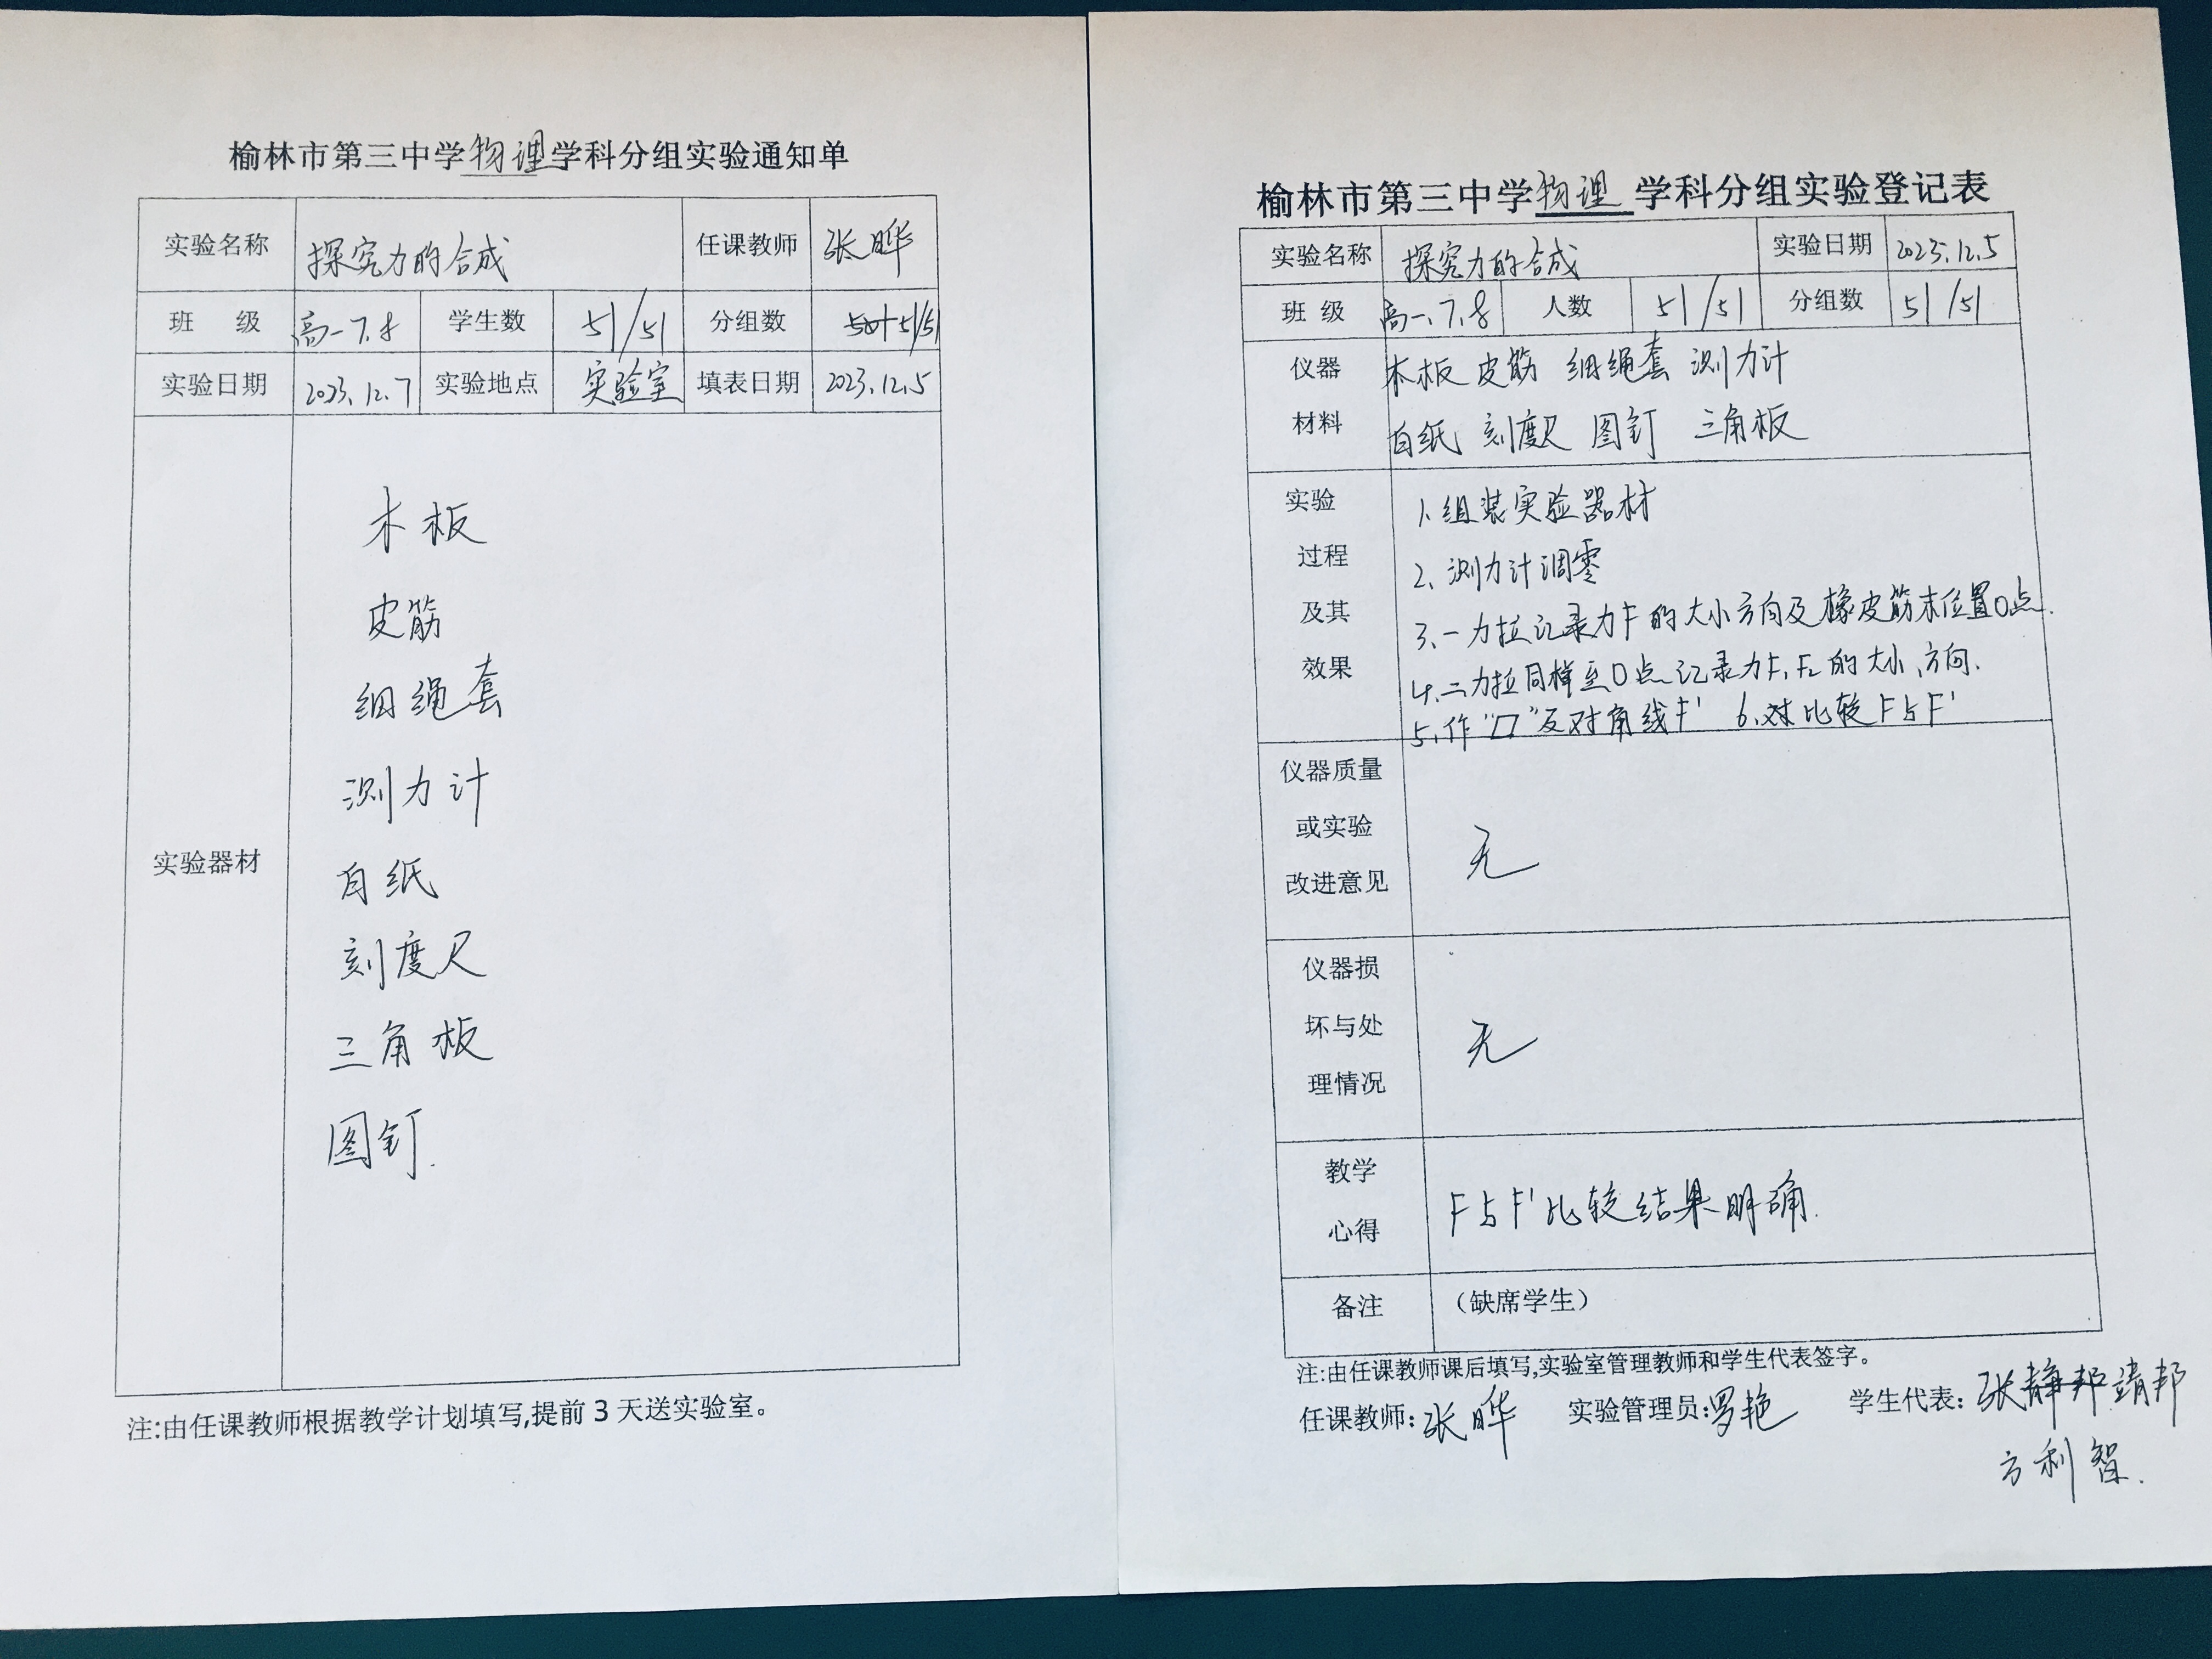 榆林市第三中学物理学科分组实验通知单
实验名称 探究力的合成 任课教师 张晔
班 级 高一7.8 学生数 51/51 分组数 51/51
实验日期 2023.12.7 实验地点 实验室 填表日期 2023.12.5
实验器材
木板
皮筋
细绳套
测力计
白纸
刻度尺
三角板
图钉.
注:由任课教师根据教学计划填写,提前3天送实验室。
榆林市第三中学物理学科分组实验登记表
实验名称 探究力的合成 实验日期 2023.12.5
班 级 高一、7、8 人数 51/51 分组数 51/51
仪器 木板 皮筋 细绳套 测力计
材料 白纸 刻度尺 图钉 三角板
实验 1、组装实验器材
过程 2、测力计调零
及其 3、一力拉记录力F的大小方向及橡皮筋末位置O点.
效果 4、二力拉同样至O点记录力F₁F₂的大小、方向.
5、作“▱”及对角线F' 6、对比较F与F'
仪器质量
或实验
改进意见
无
仪器损
坏与处
理情况
无
教学
心得
F与F'比较结果明确.
备注 (缺席学生)
注:由任课教师课后填写,实验室管理教师和学生代表签字。
任课教师:张晔 实验管理员:罗艳 学生代表:张静邦靖邦
方利智.